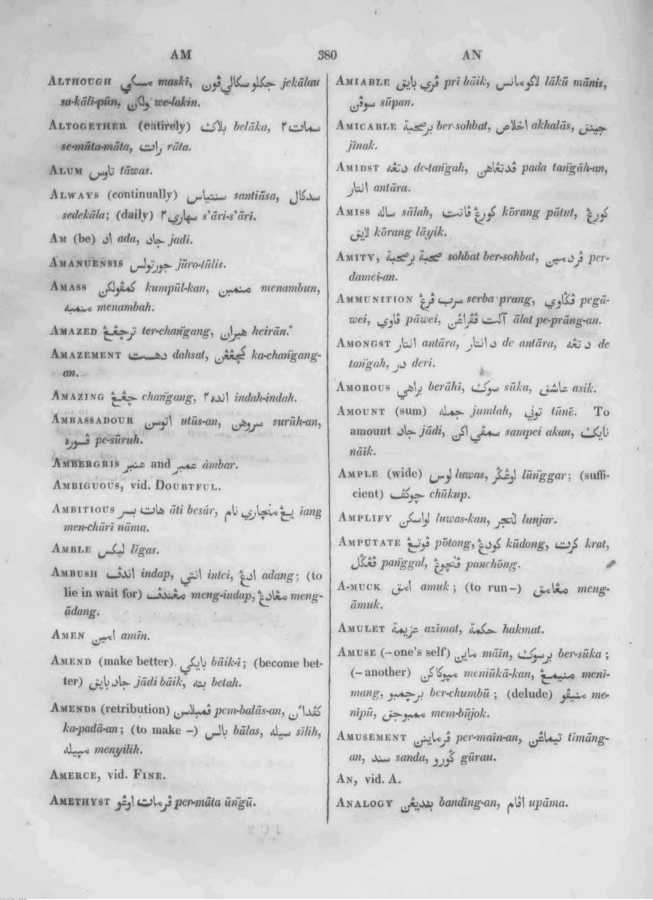 AM 380 AN
ALTHOUGH مسكي maski, جكلوسكالي‌ڤون jekālau
sa-kāli-pūn, ولكن we-lakin.
ALTOGETHER (entirely) بلاك belāka, سمات٢
se-mūta-māta, رات rāta.
ALUM تاوس tāwas.
ALWAYS (continually) سنتياس santiāsa, سدكال
sedekāla; (daily) سهاري٢ s'āri-s'āri.
AM (be) اد ada, جاد jadi.
AMANUENSIS جورتولس jūro-tūlis.
AMASS كمڤولكن kumpūl-kan, منمبن menambun,
منمبه menambah.
AMAZED ترچڠڠ ter-chañgang, هيران heirān.
AMAZEMENT دهست dahsat, كچڠڠن ka-chañgang-
an.
AMAZING چڠڠ chañgang, انده٢ indah-indah.
AMBASSADOUR اتوسن utūs-an, سروهن surūh-an,
ڤسوره pe-sūruh.
AMBERGRIS عنبر and عمبر àmbar.
AMBIGUOUS, vid. DOUBTFUL.
AMBITIOUS هات بسر āti besár, يڠ منچاري نام iang
men-chāri nāma.
AMBLE ليكس līgas.
AMBUSH اندڤ indap, انتي intei, ادڠ adang; (to
lie in wait for) مڠندڤ meng-indap, مڠادڠ meng-
ādang.
AMEN امين amīn.
AMEND (make better) بايكي bāik-i; (become bet-
ter) جاد بايق jādi bāik, بته betah.
AMENDS (retribution) ڤمبلاسن pem-balās-an, كڤداءن
ka-padā-an; (to make -) بالس bālas, سيله sīlih,
مپيله menyilih.
AMERCE, vid. FINE.
AMETHYST ڤرمات اوڠو per-māta ūñgū.
AMIABLE ڤري بايق pri bāik, لاكو مانس lākū mānis,
سوڤن sūpan.
AMICABLE برصحبة ber-sohbat, اخلاص akhalās, جينق
jīnak.
AMIDST دتڠه de-tañgah, ڤدتڠاهن pada tañgāh-an,
انتار antāra.
AMISS ساله sālah, كورڠ ڤانت kōrang pātut, كورڠ
لايق kōrang lāyik.
AMITY, صحبة برصحبة sohbat ber-sohbat, ڤردمين per-
damei-an.
AMMUNITION سرب ڤرڠ serba prang, ڤڬاوي pegā-
wei, ڤاوي pāwei, آلت ڤڤراڠن ālat pe-prāng-an.
AMONGST انتار antāra, د انتار de antāra, د تڠه de
tañgah, در deri.
AMOROUS براهي berāhi, سوك sūka, عاشق asik.
AMOUNT (sum) جمله jumlah, توني tūnē. To
amount جاد jādi, سمڤي اكن sampei akan, نايك
nāik.
AMPLE (wide) لوس luwas, لوڠݢر lūñggar; (suffi-
cient) چوكڤ chūkup.
AMPLIFY لواسكن luwas-kan, لنجر lunjar.
AMPUTATE ڤوتڠ pōtong, كودڠ kūdong, كرت krat,
ڤڠݢل pañggal, ڤنچوڠ panchōng.
A-MUCK امق amuk; (to run-) مڠامق meng-
āmuk.
AMULET عزيمة azimat, حكمة hakmat.
AMUSE (-one's self) ماين māin, برسوك ber-sūka;
(-another) مپوكاكن meniūkā-kan, منيمڠ meni-
mang, برچمبو ber-chumbū; (delude) منيڤو me-
nīpū, ممبوجق mem-būjok.
AMUSEMENT ڤرماينن per-main-an, تيماڠن timāng-
an, سند sanda, ݢورو gūrau.
AN, vid. A.
ANALOGY بنديڠن banding-an, اڤام upāma.